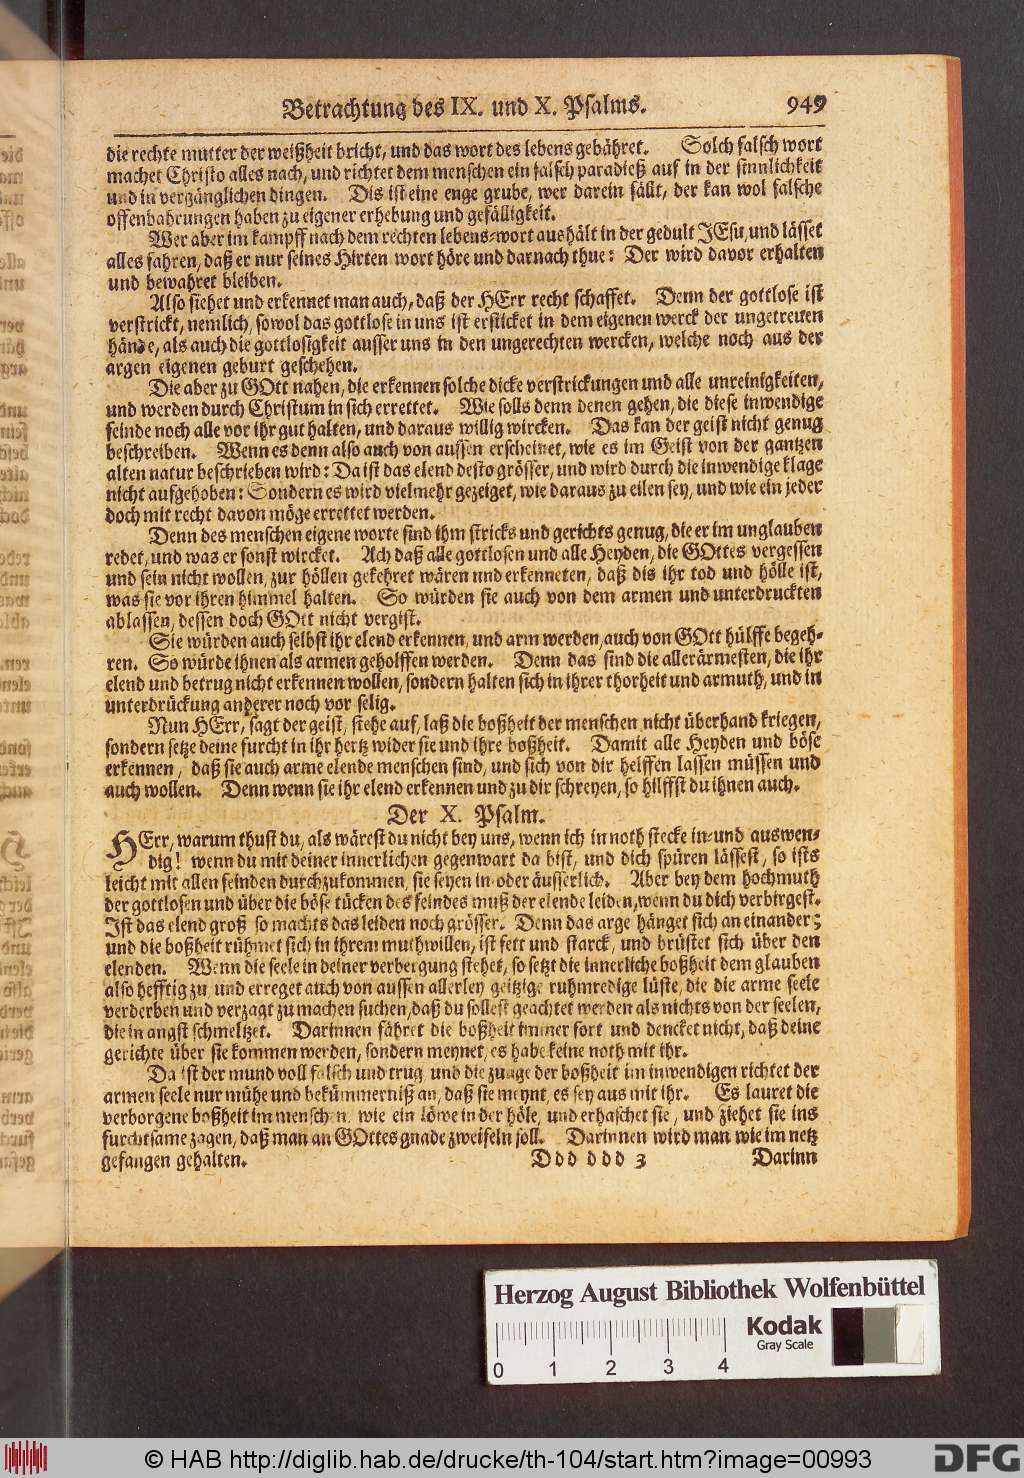 Betrachtung des IX. und X. Psalms. 949
die rechte mutter der weißheit bricht, und das wort des lebens gebähret. Solch falsch wort
machet Christo alles nach, und richtet dem menschen ein falsch paradieß auf in der sinnlichkeit
und in vergänglichen dingen. Dis ist eine enge grube, wer darein fällt, der kan wol falsche
offenbahrungen haben zu eigener erhebung und gefälligkeit.
Wer aber im kampff nach dem rechten lebens-wort aushält in der gedult JEsu, und lässet
alles fahren, daß er nur seines Hirten wort höre und darnach thue: Der wird davor erhalten
und bewahret bleiben.
Also siehet und erkennet man auch, daß der HErr recht schaffet. Denn der gottlose ist
verstrickt, nemlich, sowol das gottlose in uns ist ersticket in dem eigenen werck der ungetreuen
hände, als auch die gottlosigkeit ausser uns in den ungerechten wercken, welche noch aus der
argen eigenen geburt geschehen.
Die aber zu GOtt nahen, die erkennen solche dicke verstrickungen und alle unreinigkeiten,
und werden durch Christum in sich errettet. Wie solls denn denen gehen, die diese inwendige
feinde noch alle vor ihr gut halten, und daraus willig wircken. Das kan der geist nicht genug
beschreiben. Wenn es denn also auch von aussen erscheinet, wie es im Geist von der gantzen
alten natur beschrieben wird: Da ist das elend desto grösser, und wird durch die inwendige klage
nicht aufgehoben: Sondern es wird vielmehr gezeiget, wie daraus zu eilen sey, und wie ein jeder
doch mit recht davon möge errettet werden.
Denn des menschen eigene worte sind ihm stricks und gerichts genug, die er im unglauben
redet, und was er sonst wircket. Ach daß alle gottlosen und alle Heyden, die GOttes vergessen
und sein nicht wollen, zur höllen gekehret wären und erkenneten, daß dis ihr tod und hölle ist,
was sie vor ihren himmel halten. So würden sie auch von dem armen und unterdruckten
ablassen, dessen doch GOtt nicht vergist.
Sie würden auch selbst ihr elend erkennen, und arm werden, auch von GOtt hülffe begeh-
ren. So würde ihnen als armen geholffen werden. Denn das sind die allerärmesten, die ihr
elend und betrug nicht erkennen wollen, sondern halten sich in ihrer thorheit und armuth, und in
unterdrückung anderer noch vor selig.
Nun HErr, sagt der geist, stehe auf, laß die boßheit der menschen nicht überhand kriegen,
sondern setze deine furcht in ihr hertz wider sie und ihre boßheit. Damit alle Heyden und böse
erkennen, daß sie auch arme elende menschen sind, und sich von dir helffen lassen müssen und
auch wollen. Denn wenn sie ihr elend erkennen und zu dir schreyen, so hilffst du ihnen auch.
Der X. Psalm.
HErr, warum thust du, als wärest du nicht bey uns, wenn ich in noth stecke in- und auswen-
dig! wenn du mit deiner innerlichen gegenwart da bist, und dich spüren lässest, so ists
leicht mit allen feinden durchzukommen, sie seyen in- oder äusserlich. Aber bey dem hochmuth
der gottlosen und über die böse tücken des feindes muß der elende leiden, wenn du dich verbirgest.
Ist das elend groß so machts das leiden noch grösser. Denn das arge hänget sich an einander;
und die boßheit rühmet sich in ihrem muthwillen, ist fett und starck, und brüstet sich über den
elenden. Wenn die seele in deiner verbergung stehet, so setzt die innerliche boßheit dem glauben
also hefftig zu, und erreget auch von aussen allerley geitzige ruhmredige lüste, die die arme seele
verderben und verzagt zu machen suchen, daß du sollest geachtet werden als nichts von der seelen,
die in angst schmeltzet. Darinnen fähret die boßheit immer fort und dencket nicht, daß deine
gerichte über sie kommen werden, sondern meynet, es habe keine noth mit ihr.
Da ist der mund voll falsch und trug, und die zunge der boßheit im inwendigen richtet der
armen seele nur mühe und bekümmerniß an, daß sie meynt, es sey aus mit ihr. Es lauret die
verborgene boßheit im menschen, wie ein löwe in der höle, und erhaschet sie, und ziehet sie ins
furchtsame zagen, daß man an GOttes gnade zweifeln soll. Darinnen wird man wie im netz
gefangen gehalten. Ddd ddd 3 Darinn
Herzog August Bibliothek Wolfenbüttel
Kodak
Gray Scale
0 1 2 3 4
© HAB http://diglib.hab.de/drucke/th-104/start.htm?image=00993
DFG